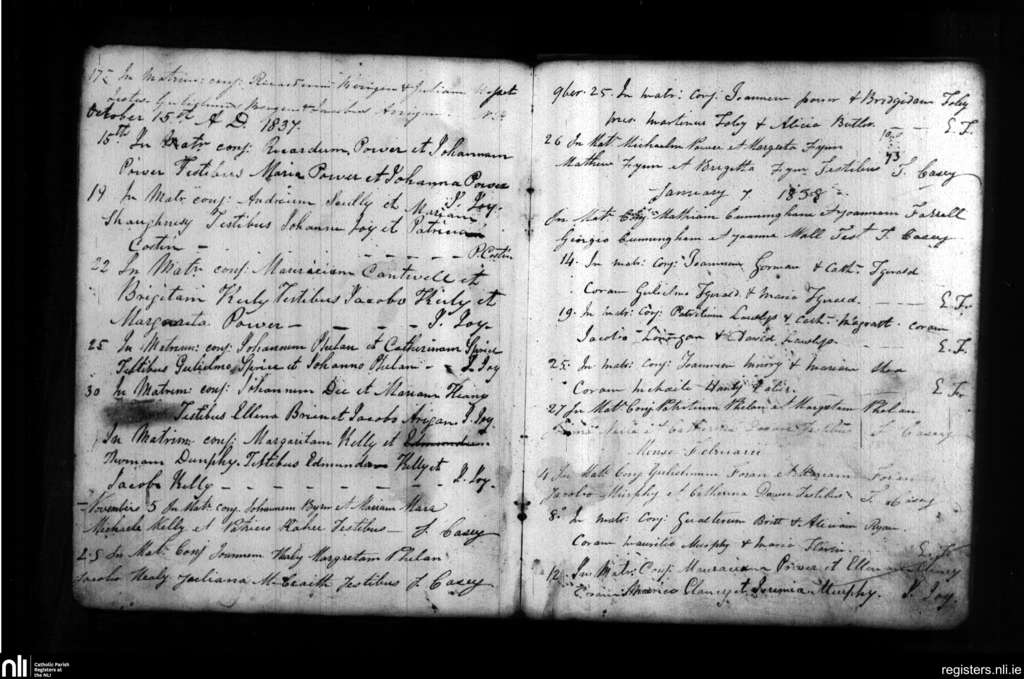 17 In Matrim: conj:
Testes Gulielmus
October 15th A D. 1837.
15th In Matr conj: Ricardum Power et Johannam
Power Testibus Maria Power et Johanna Power
P. Joy.
19 In Matr conj: Andreum Scully et Mariam
Shaughnesy Testibus Johanne Joy et Patricio
Costin - P. Costin
22 In Matr conj: Mauricium Cantwell et
Brigitam Keily Testibus Jacobo Keily et
Margarita Power - - - - P. Joy.
25 In Matrim: conj: Johannem Phelan et Catherinam Spire
Testibus Gulielmo Spire et Johanno Phelan - P. Joy
30 In Matrim: conj: Johannem Dee et Mariam
Testibus Ellena Brien et Jacobo P. Joy.
In Matrim: conj: Margaritam Kelly et Edmundum
Thomam Dunphy. Testibus Edmundo Kelly et
Jacobo Kelly - - - - - - - P. Joy.
Novembris 5 In Mat: conj: Johannem Byrne et Mariam Mara
Michaele Kelly et Patricio Testibus - J. Casey
25 In Mat: Conj Joannem Healy Margretam Phelan
Jacobo Healy Juliana McCraith Testibus J Casey
9ber 25. In matr: Conj: Joannem power & Bridgidam Foley
pres Martinus Foley & Alicia Butler. E. F.
26 In Mat Michaelem Power et Margreta Flynn
Mathew Flynn et Brigetta Flynn Testibus J. Casey
10
73
January 7 1838
In Mat: Conj Mathiam Cunningham et Joannam Farrell
Georgio Cunningham et Joanna Wall Test J. Casey
14. In matr: Conj: Joannem Gorman & Cath: Fgerald
Coram Gulielmo Fgerald & Maria Fgerald. E. F.
19. In matr: Conj: Patritium Lawless & Cath: Magrath coram
Jacobo Lonergan & David Lawless. E. F.
25. In matr: Conj: Joannem & Mariam
Coram E. F.
27 In Mat: Conj Patritium Phelan et Margretam Phelan
Testibus J. Casey
Mense Februarii
4 In Mat: Conj Gulielmum Foran et Foran
Jacobo Murphy et Catherina Dower Testibus J. Casey
8. In matr: Conj: Gualterum Britt & Aliciam Ryan
Coram Mauritio Murphy & Maria E. F.
12 In Matr: Conj: Mauricium Power et Ellenam Clancy
Coram Clancy et Jeremia Murphy. P. Joy.
nli
Catholic Parish
Registers at
the NLI
registers.nli.ie